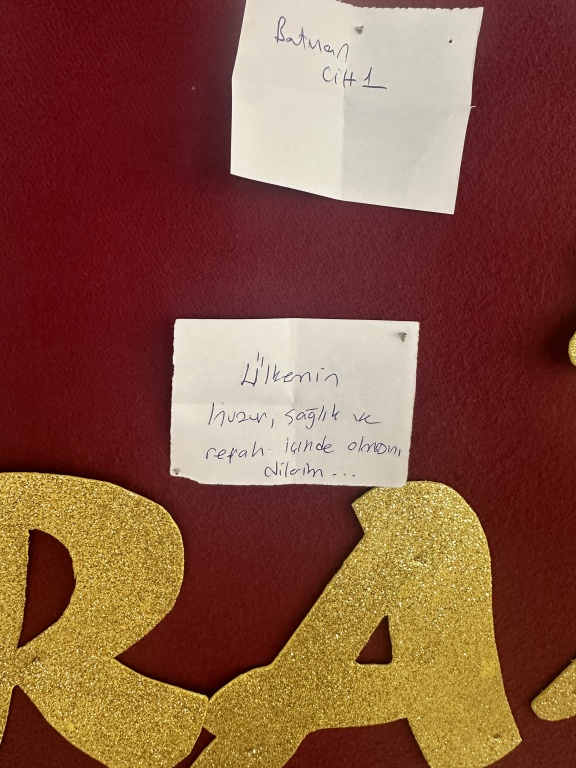 Batman
CİH1
Ülkenin
huzur, sağlık ve
refah içinde olmasını
dilerim...
RA